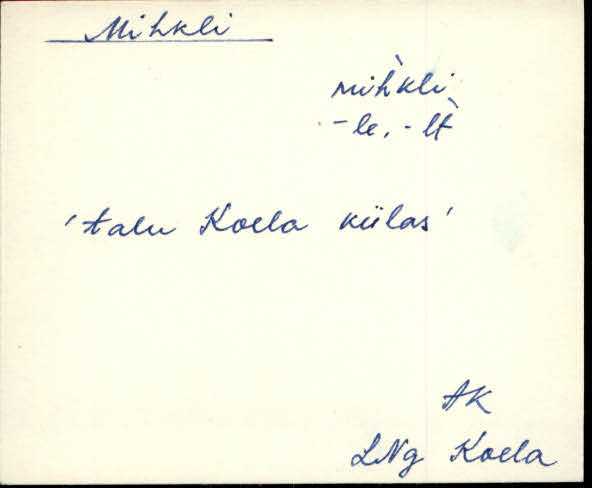 Mihkli
mih̀kli
-le, -lt̀
'talu Koela külas'
AK
LNg Koela